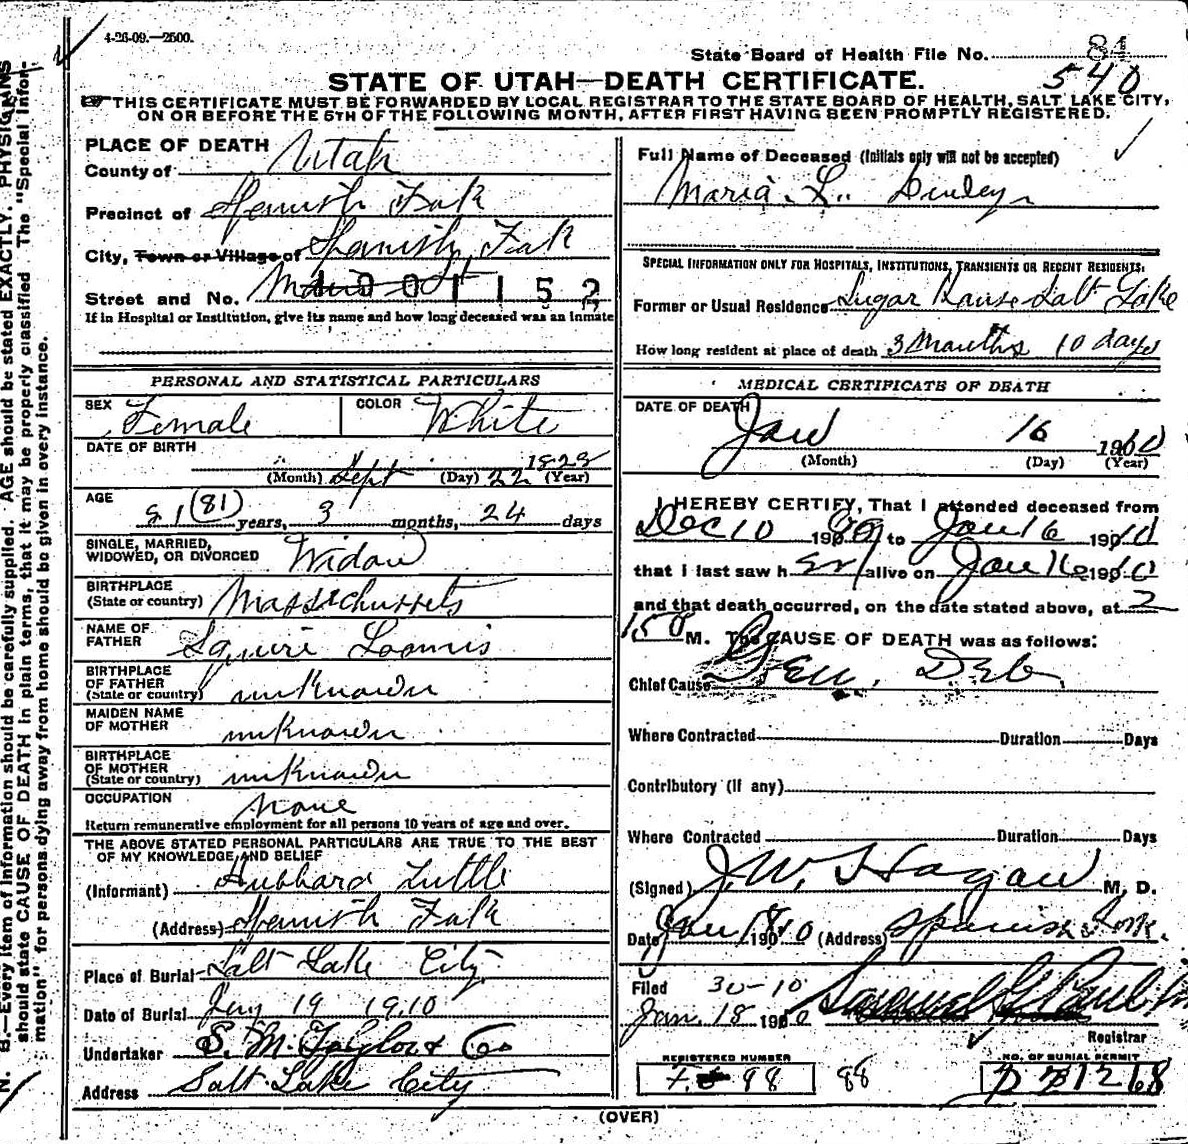 4-26-09.—2500.
State Board of Health File No. 84
540
STATE OF UTAH—DEATH CERTIFICATE.
THIS CERTIFICATE MUST BE FORWARDED BY LOCAL REGISTRAR TO THE STATE BOARD OF HEALTH, SALT LAKE CITY,
ON OR BEFORE THE 5TH OF THE FOLLOWING MONTH, AFTER FIRST HAVING BEEN PROMPTLY REGISTERED.
PLACE OF DEATH
County of Utah
Precinct of Spanish Fork
City, Town or Village of Spanish Fork
Street and No. Main St 1001152
If in Hospital or Institution, give its name and how long deceased was an inmate
Full Name of Deceased (Initials only will not be accepted)
Maria L.
SPECIAL INFORMATION ONLY FOR HOSPITALS, INSTITUTIONS, TRANSIENTS OR RECENT RESIDENTS.
Former or Usual Residence Sugar House Salt Lake
How long resident at place of death 3 Months 10 days
PERSONAL AND STATISTICAL PARTICULARS
SEX Female COLOR White
DATE OF BIRTH
1828
(Month) Sept (Day) 22 (Year)
AGE
81 (81) years, 3 months, 24 days
SINGLE, MARRIED,
WIDOWED, OR DIVORCED Widow
BIRTHPLACE
(State or country) Massichussets
NAME OF
FATHER Squire Loomis
BIRTHPLACE
OF FATHER
(State or country) unKnown
MAIDEN NAME
OF MOTHER unKnown
BIRTHPLACE
OF MOTHER
(State or country) unKnown
OCCUPATION None
Return remunerative employment for all persons 10 years of age and over.
THE ABOVE STATED PERSONAL PARTICULARS ARE TRUE TO THE BEST
OF MY KNOWLEDGE AND BELIEF
(Informant) Hubbard Tuttle
(Address) Spanish Fork
Place of Burial Salt Lake City
Date of Burial Jany 19 1910
Undertaker S. M. Taylor & Co
Address Salt Lake City
MEDICAL CERTIFICATE OF DEATH
DATE OF DEATH
Jan 16 1910
(Month) (Day) (Year)
I HEREBY CERTIFY, That I attended deceased from
Dec 10 1909 to Jan 16 1910
that I last saw her alive on Jan 16 1910
and that death occurred, on the date stated above, at 2
150 M. The CAUSE OF DEATH was as follows:
Chief Cause Gen. Deb.
Where Contracted Duration Days
Contributory (If any)
Where Contracted Duration Days
(Signed) J. W. Hagan M. D.
Date Jan 18 1910 (Address) Spanish Fork.
Filed 30-10
Jan. 18 1910 Samuel
Registrar
REGISTERED NUMBER
88 88
NO. OF BURIAL PERMIT
1268
(OVER)
N. B.—Every item of information should be carefully supplied. AGE should be stated EXACTLY. PHYSICIANS
should state CAUSE OF DEATH in plain terms, that it may be properly classified. The "Special Infor-
mation" for persons dying away from home should be given in every instance.